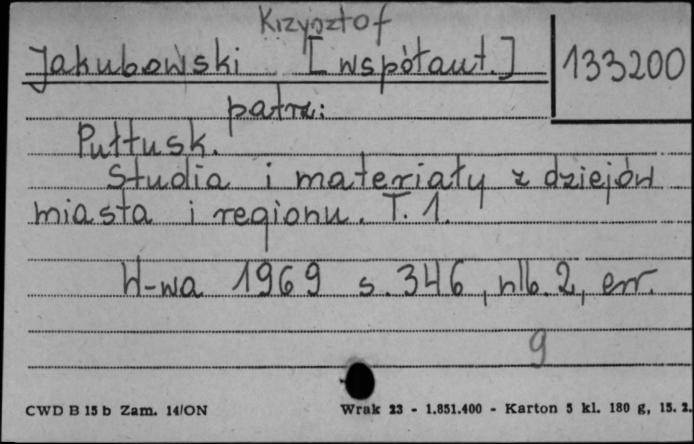 Krzysztof
Jakubowski [współaut.] 133200
patrz:
Pułtusk.
Studia i materiały z dziejów
miasta i regionu. T. 1.
W-wa 1969 s. 346, nlb. 2, err.
g
CWD B 15 b Zam. 14/ON Wrak 23 - 1.851.400 - Karton 5 kl. 180 g, 15. 2.